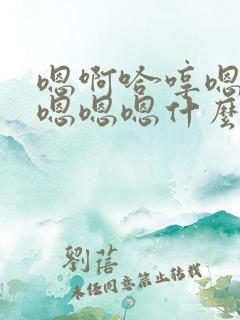 嗯啊哈哼嗯
嗯嗯嗯什麼
劉蓓
未经同意禁止转载